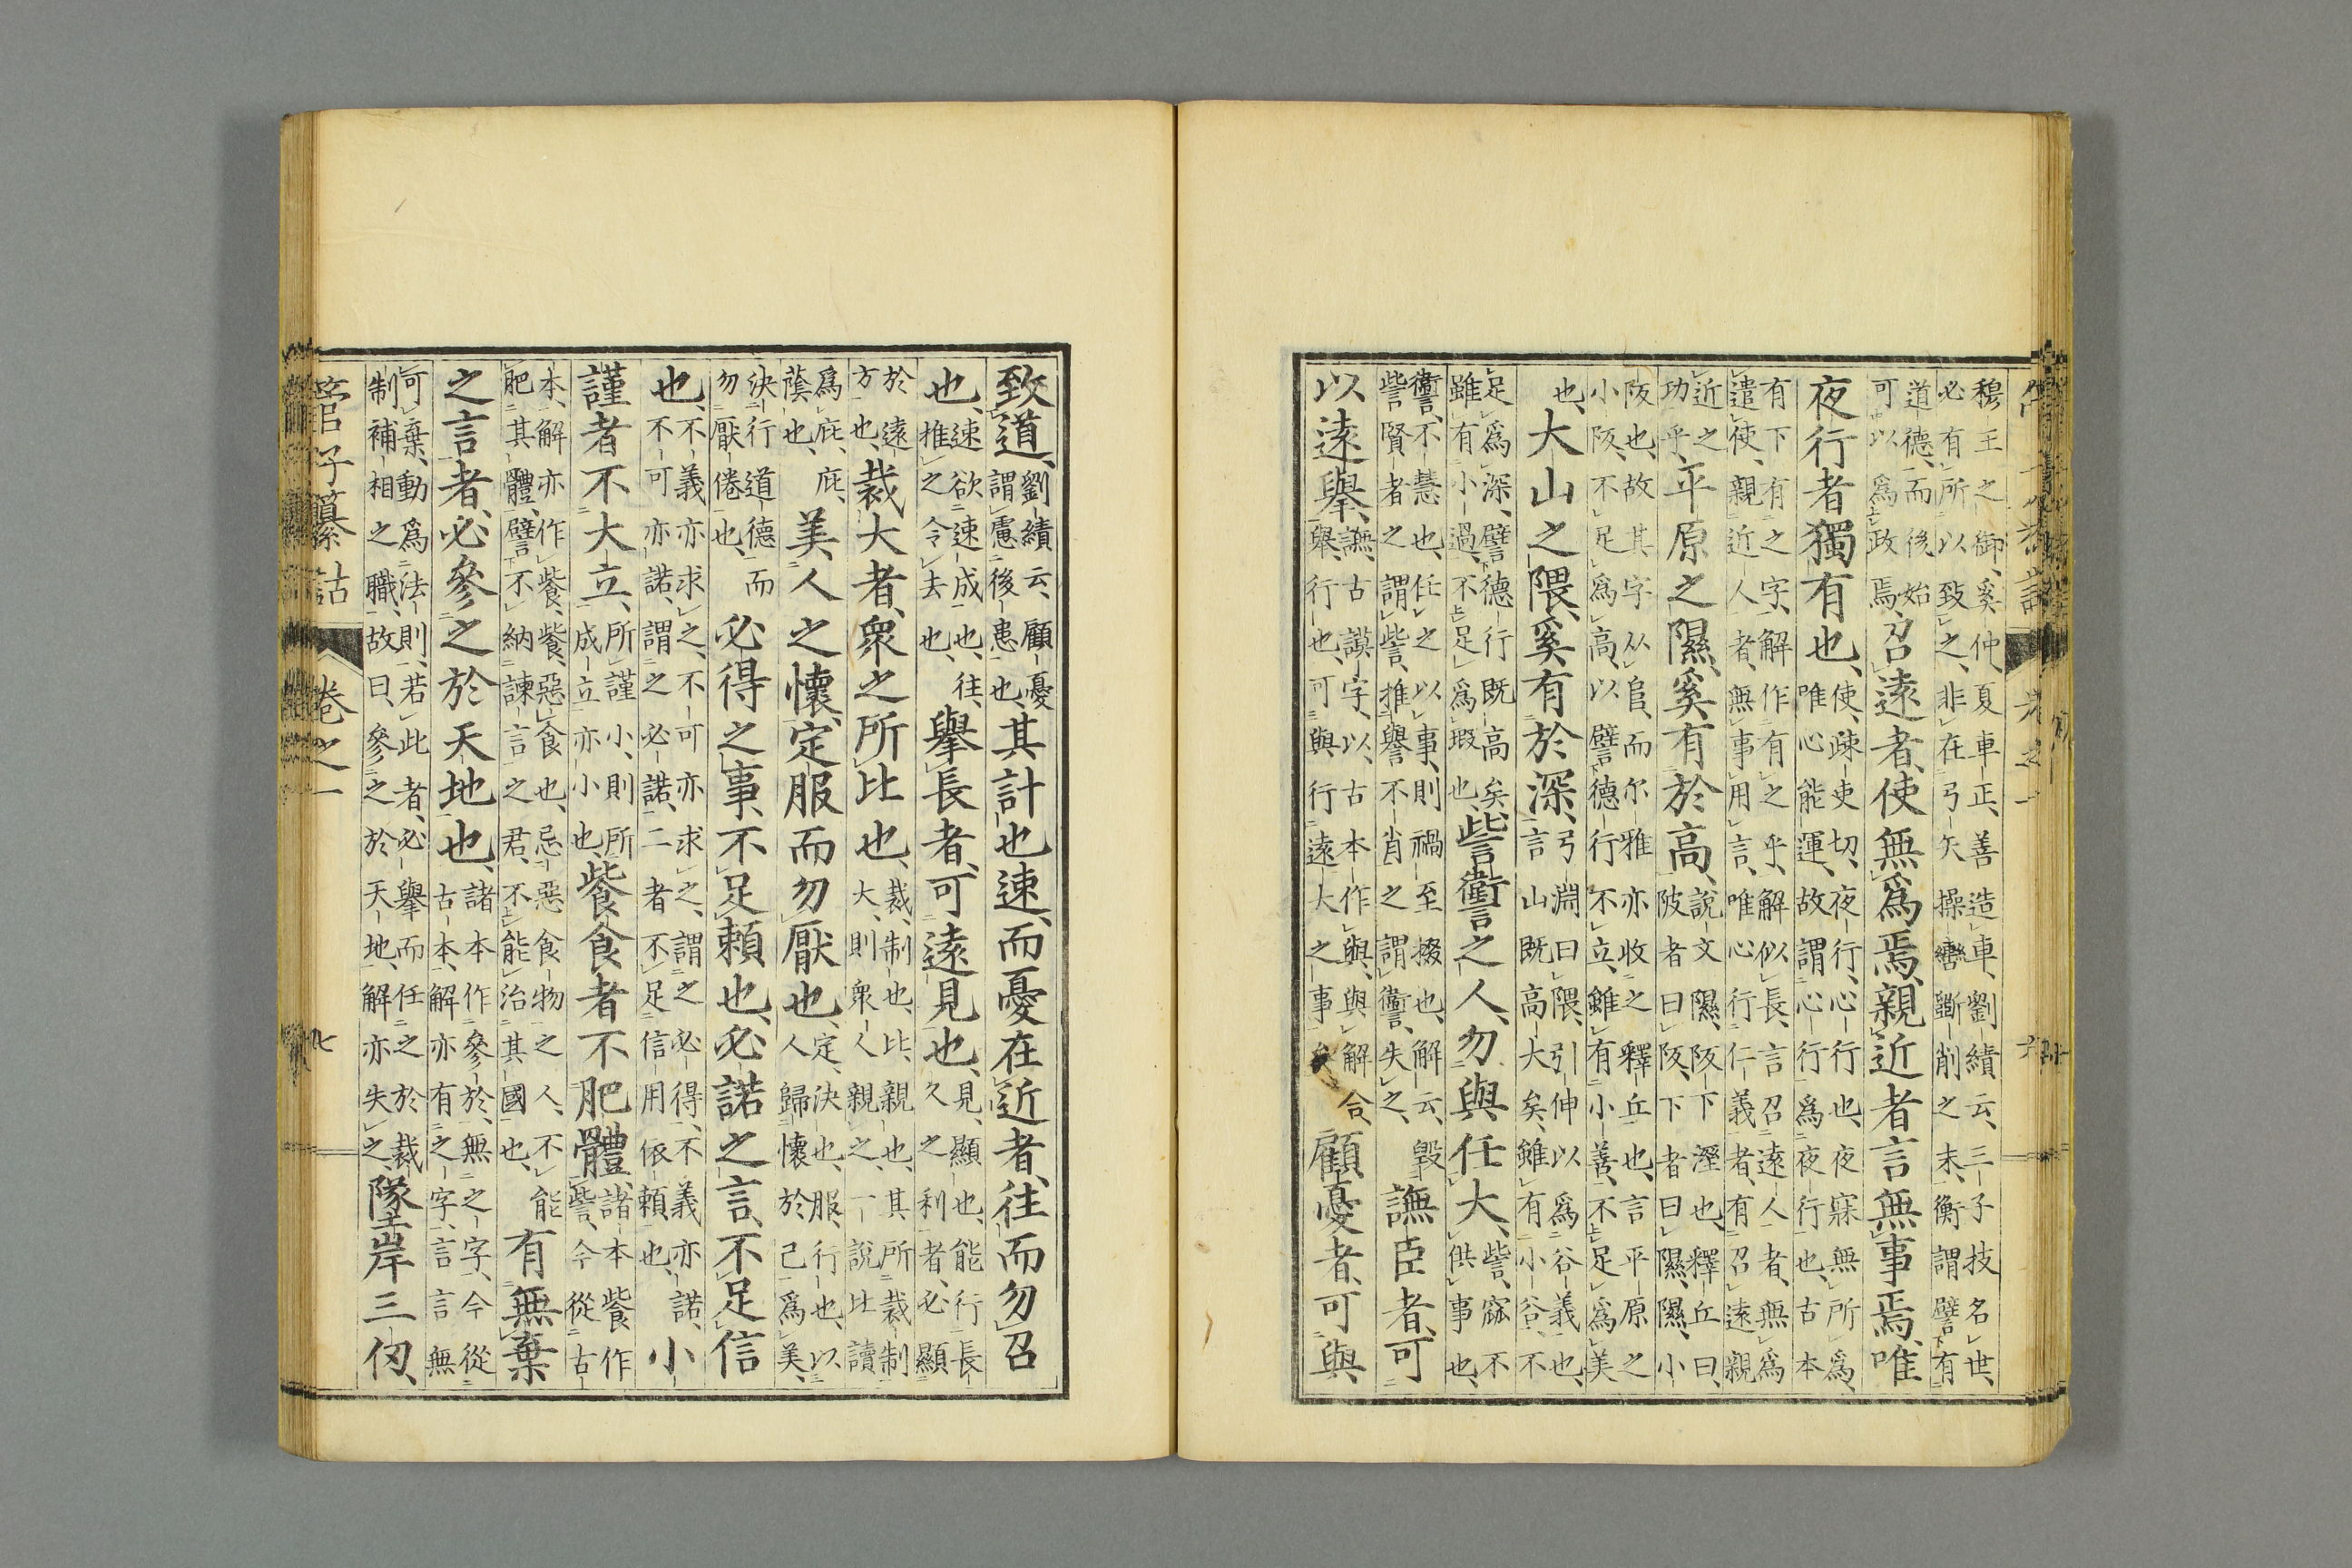 穆王之御、奚仲夏車正、善造車、劉績云、三子技名世、
必有所以致之、非在弓矢操轡斲削之末、衡謂譬有
道德、而後始可以爲政焉、召遠者使無爲焉、親近者言無事焉、唯
夜行者獨有也、使、疎吏切、夜行、心行也、夜寐無所爲、唯心能運、故謂心行爲夜行也、古本
有下有之字、解作有之乎、解似長、言召遠人者、無爲
遣使、親近人者、無事用言、唯心行仁義者、有召遠親
近之功乎、平原之隰、奚有於高、說文隰、阪下溼也、釋丘曰、陂者曰阪、下者曰隰、隰、小
阪也、故其字从𨸏、而尔雅亦收之釋丘也、言平原之
小阪、不足爲高、以譬德行不立、雖有小善、不足爲美
也、大山之隈、奚有於深、弓淵曰隈、引伸以爲谷義也、言山既高大矣、雖有小谷、不
足爲深、譬德行既高矣、雖有小過、不足爲瑕也、訾讆之人、勿與任大、訾、窳不供事也、
讆、不慧也、任之以事、則禍至掇也、解云、毀訾賢者之謂訾、推譽不肖之謂讆、失之、譕臣者、可
以遠舉、譕、古謨字、以、古本作與、與解合、舉、行也、可與行遠大之事矣、顧憂者、可與
致道、劉績云、顧憂謂慮後患也、其計也速、而憂在近者、往而勿召
也、速欲速成也、往、推之令去也、舉長者、可遠見也、見、顯也、能行長久之利者、必顯
於遠方也、裁大者、衆之所比也、裁、制也、比、親也、其所裁制大、則衆人親之、一說比讀
爲庇、庇、蔭也、美人之懷、定服而勿厭也、定、決也、服、行也、以人歸懷於己爲美、
決行道德而勿厭倦也、必得之事、不足賴也、必諾之言、不足信
也、不義亦求之、不可亦求之、謂之必得、不義亦諾、不可亦諾、謂之必諾、二者不足信用依賴也、小
謹者不大立、所謹小、則所成立亦小也、飺食者不肥體、諸本飺作訾、今從古
本、解亦作飺、飺、惡食也、忌惡食物之人、不能肥其體、譬不納諫言之君、不能治其國也、有無棄
之言者、必參之於天地也、諸本作參於、無之字、今從古本、解亦有之字、言言無
可棄、動爲法則、若此者、必舉而任之於裁制補相之職、故曰、參之於天地、解亦失之、墜岸三仞、
管子纂詁 卷之一 七